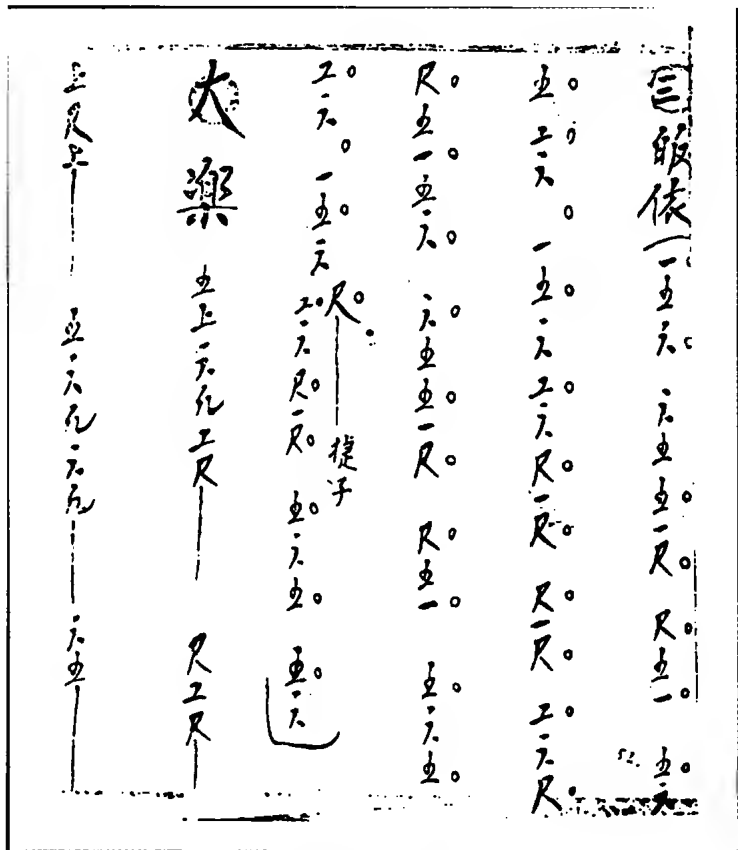 三皈依 一五六 六五五一尺 尺五一 五六
五 工六 一五 六工六尺一尺 尺一尺 工六尺
尺五一五六 六五五一尺 尺五一 五六五
工六 一五六 工六尺一尺 五六五 五六
尺 捷子
大樂 五上六凡工尺 尺工尺
上尺上 五六凡六凡 六五
52.